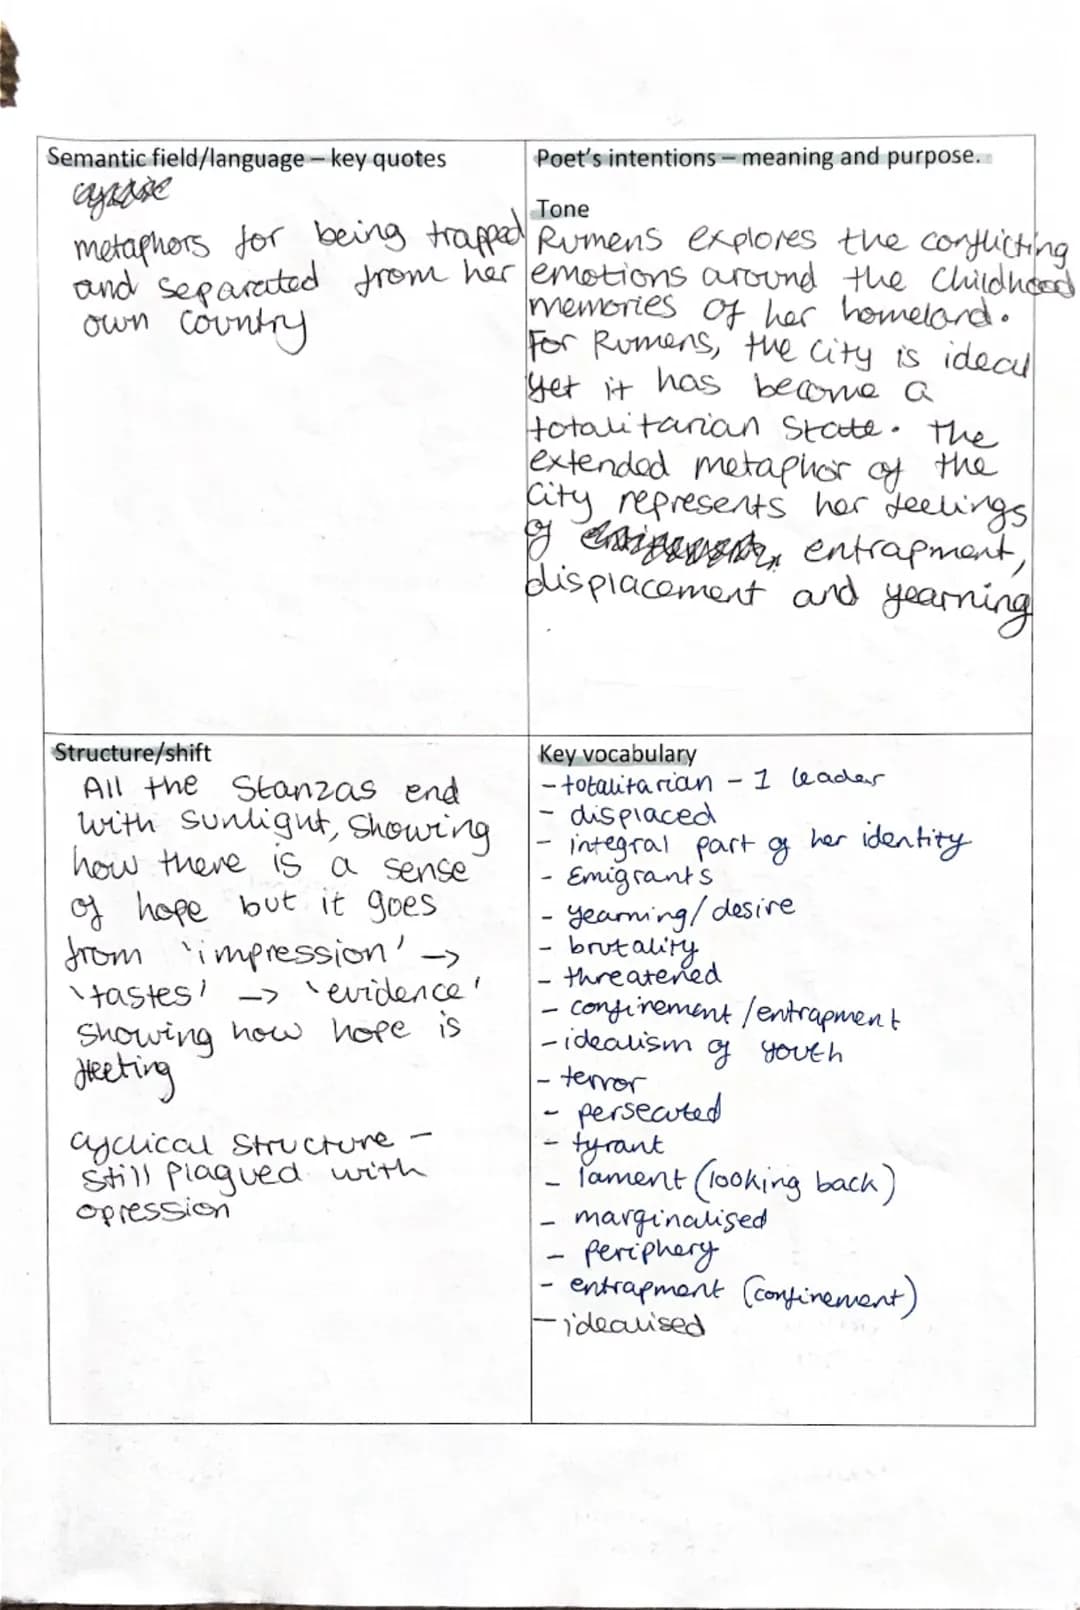 Semantic field/language – key quotes
metaphors for being trapped
and separated from her
own country
Poet's intentions – meaning and purpose.
Tone
Rumens explores the conflicting
emotions around the Childhood
memories of her homeland.
For Rumens, the city is ideal
yet it has become a
totalitarian State. The
extended metaphor of the
City represents her feelings
of entrapment,
displacement and yearning
Structure/shift
All the Stanzas end
with sunlight, showing
how there is a sense
of hope but it goes
from 'impression' ->
'tastes' -> 'evidence'
showing how hope is
fleeting
cyclical structure -
still plagued with
opression
Key vocabulary
- totalitarian - 1 leader
- displaced
- integral part of her identity
- Emigrants
- yearning/desire
- brutality
- threatened
- confinement/entrapment
- idealism of youth
- terror
- persecuted
- tyrant
- lament (looking back)
- marginalised
- Periphery
- entrapment (confinement)
- idealised